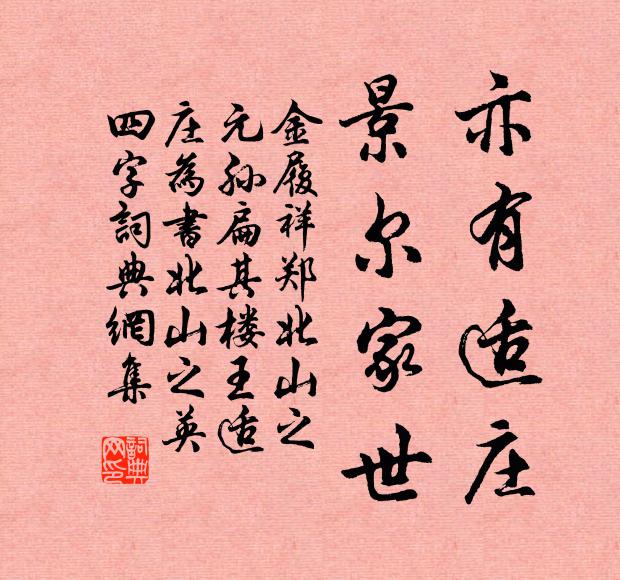 亦有适庄
景尔家世
金履祥郑北山之
元孙扁其楼王适
庄为书北山之英
四字詞典網集
詞典
网印